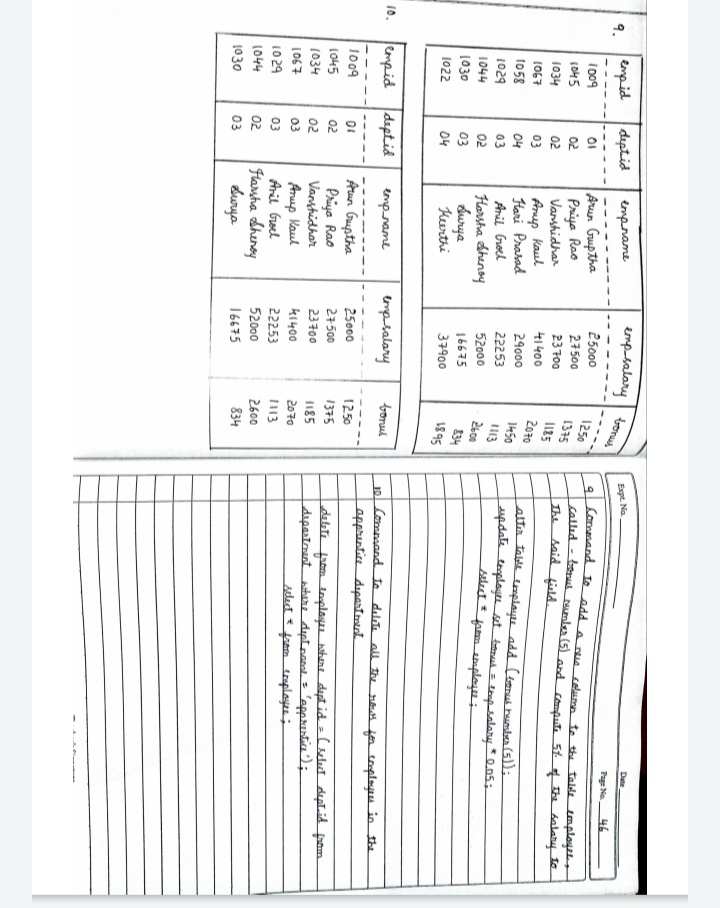 9.
emp_id dept_id emp_name emp_salary bonus
1009 01 Arun Guptha 25000 1250
1045 02 Priya Rao 27500 1375
1034 02 Vanshidhar 23700 1185
1067 03 Anup Kaul 41400 2070
1058 04 Hari Prasad 29000 1450
1029 03 Anil Goel 22253 1113
1044 02 Harsha Shenoy 52000 2600
1030 03 Surya 16675 834
1022 04 Keerthi 37900 1895
10.
emp_id dept_id emp_name emp_salary bonus
1009 01 Arun Guptha 25000 1250
1045 02 Priya Rao 27500 1375
1034 02 Vanshidhar 23700 1185
1067 03 Anup Kaul 41400 2070
1029 03 Anil Goel 22253 1113
1044 02 Harsha Shenoy 52000 2600
1030 03 Surya 16675 834
Expt. No.
Date
Page No. 46
9 Command to add a new column to the table employee,
called - bonus number(5) and compute 5% of the salary to
the said field.
alter table employee add (bonus number(5));
update employee set bonus = emp_salary * 0.05;
select * from employee;
10 Command to delete all the rows for employees in the
apprentice department
delete from employee where dept_id = (select dept_id from
department where dept_name = 'apprentice');
select * from employee;